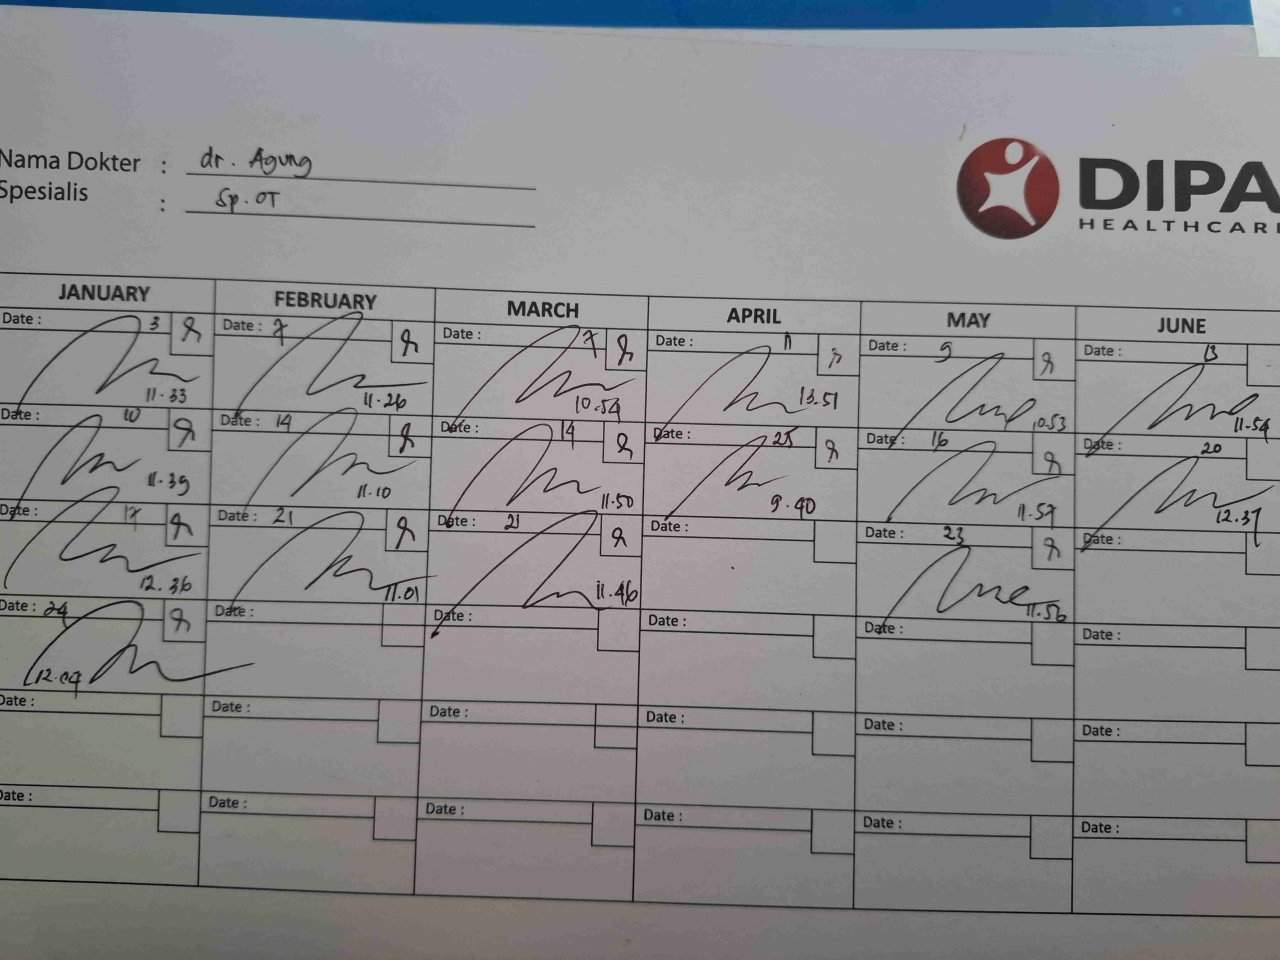 Nama Dokter : dr. Agung
Spesialis : Sp. OT
DIPA
HEALTHCARE
JANUARY FEBRUARY MARCH APRIL MAY JUNE
Date : 3 Date : 7 Date : 7 Date : 11 Date : 9 Date : 13
11.33 11.26 10.54 13.51 10.53 11.54
Date : 10 Date : 14 Date : 14 Date : 25 Date : 16 Date : 20
11.39 11.10 11.50 9.40 11.57 12.37
Date : 17 Date : 21 Date : 21 Date : Date : 23 Date :
12.36 11.01 11.46 11.56
Date : 24 Date : Date : Date : Date : Date :
12.09
Date : Date : Date : Date : Date : Date :
Date : Date : Date : Date : Date : Date :